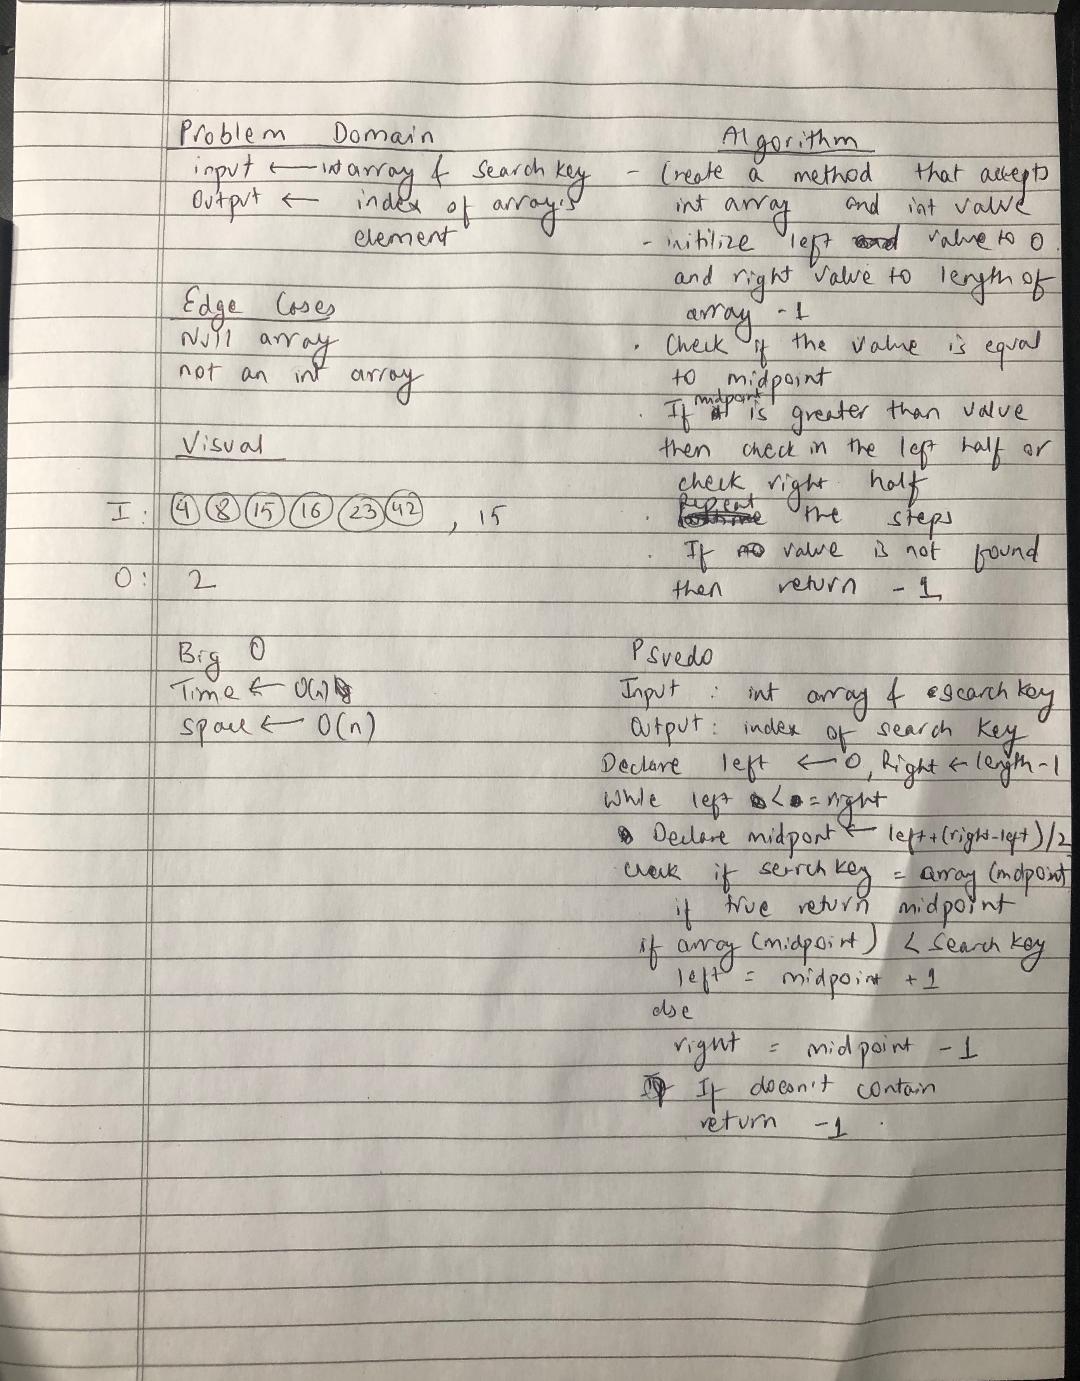 Problem Domain
input ← int array & search key
Output ← index of array's
element
Edge Cases
Null array
not an int array
Visual
I: 4 8 15 16 23 42 , 15
O: 2
Big O
Time ← O(n)
space ← O(n)
Algorithm
- Create a method that accepts
int array and int value
- initilize left value to 0
and right value to length of
array -1
. Check if the value is equal
to midpoint
. If midpoint is greater than value
then check in the left half or
check right half
. Repeat the steps
. If value is not found
then return -1
Psuedo
Input : int array & search key
Output : index of search key
Declare left ← 0, Right ← length-1
While left <= right
Declare midpont ← left+(right-left)/2
check if serrch key = array (mdpoint
if true return midpoint
if array (midpoint) < Search key
left = midpoint + 1
else
right = midpoint - 1
If doesn't contain
return -1